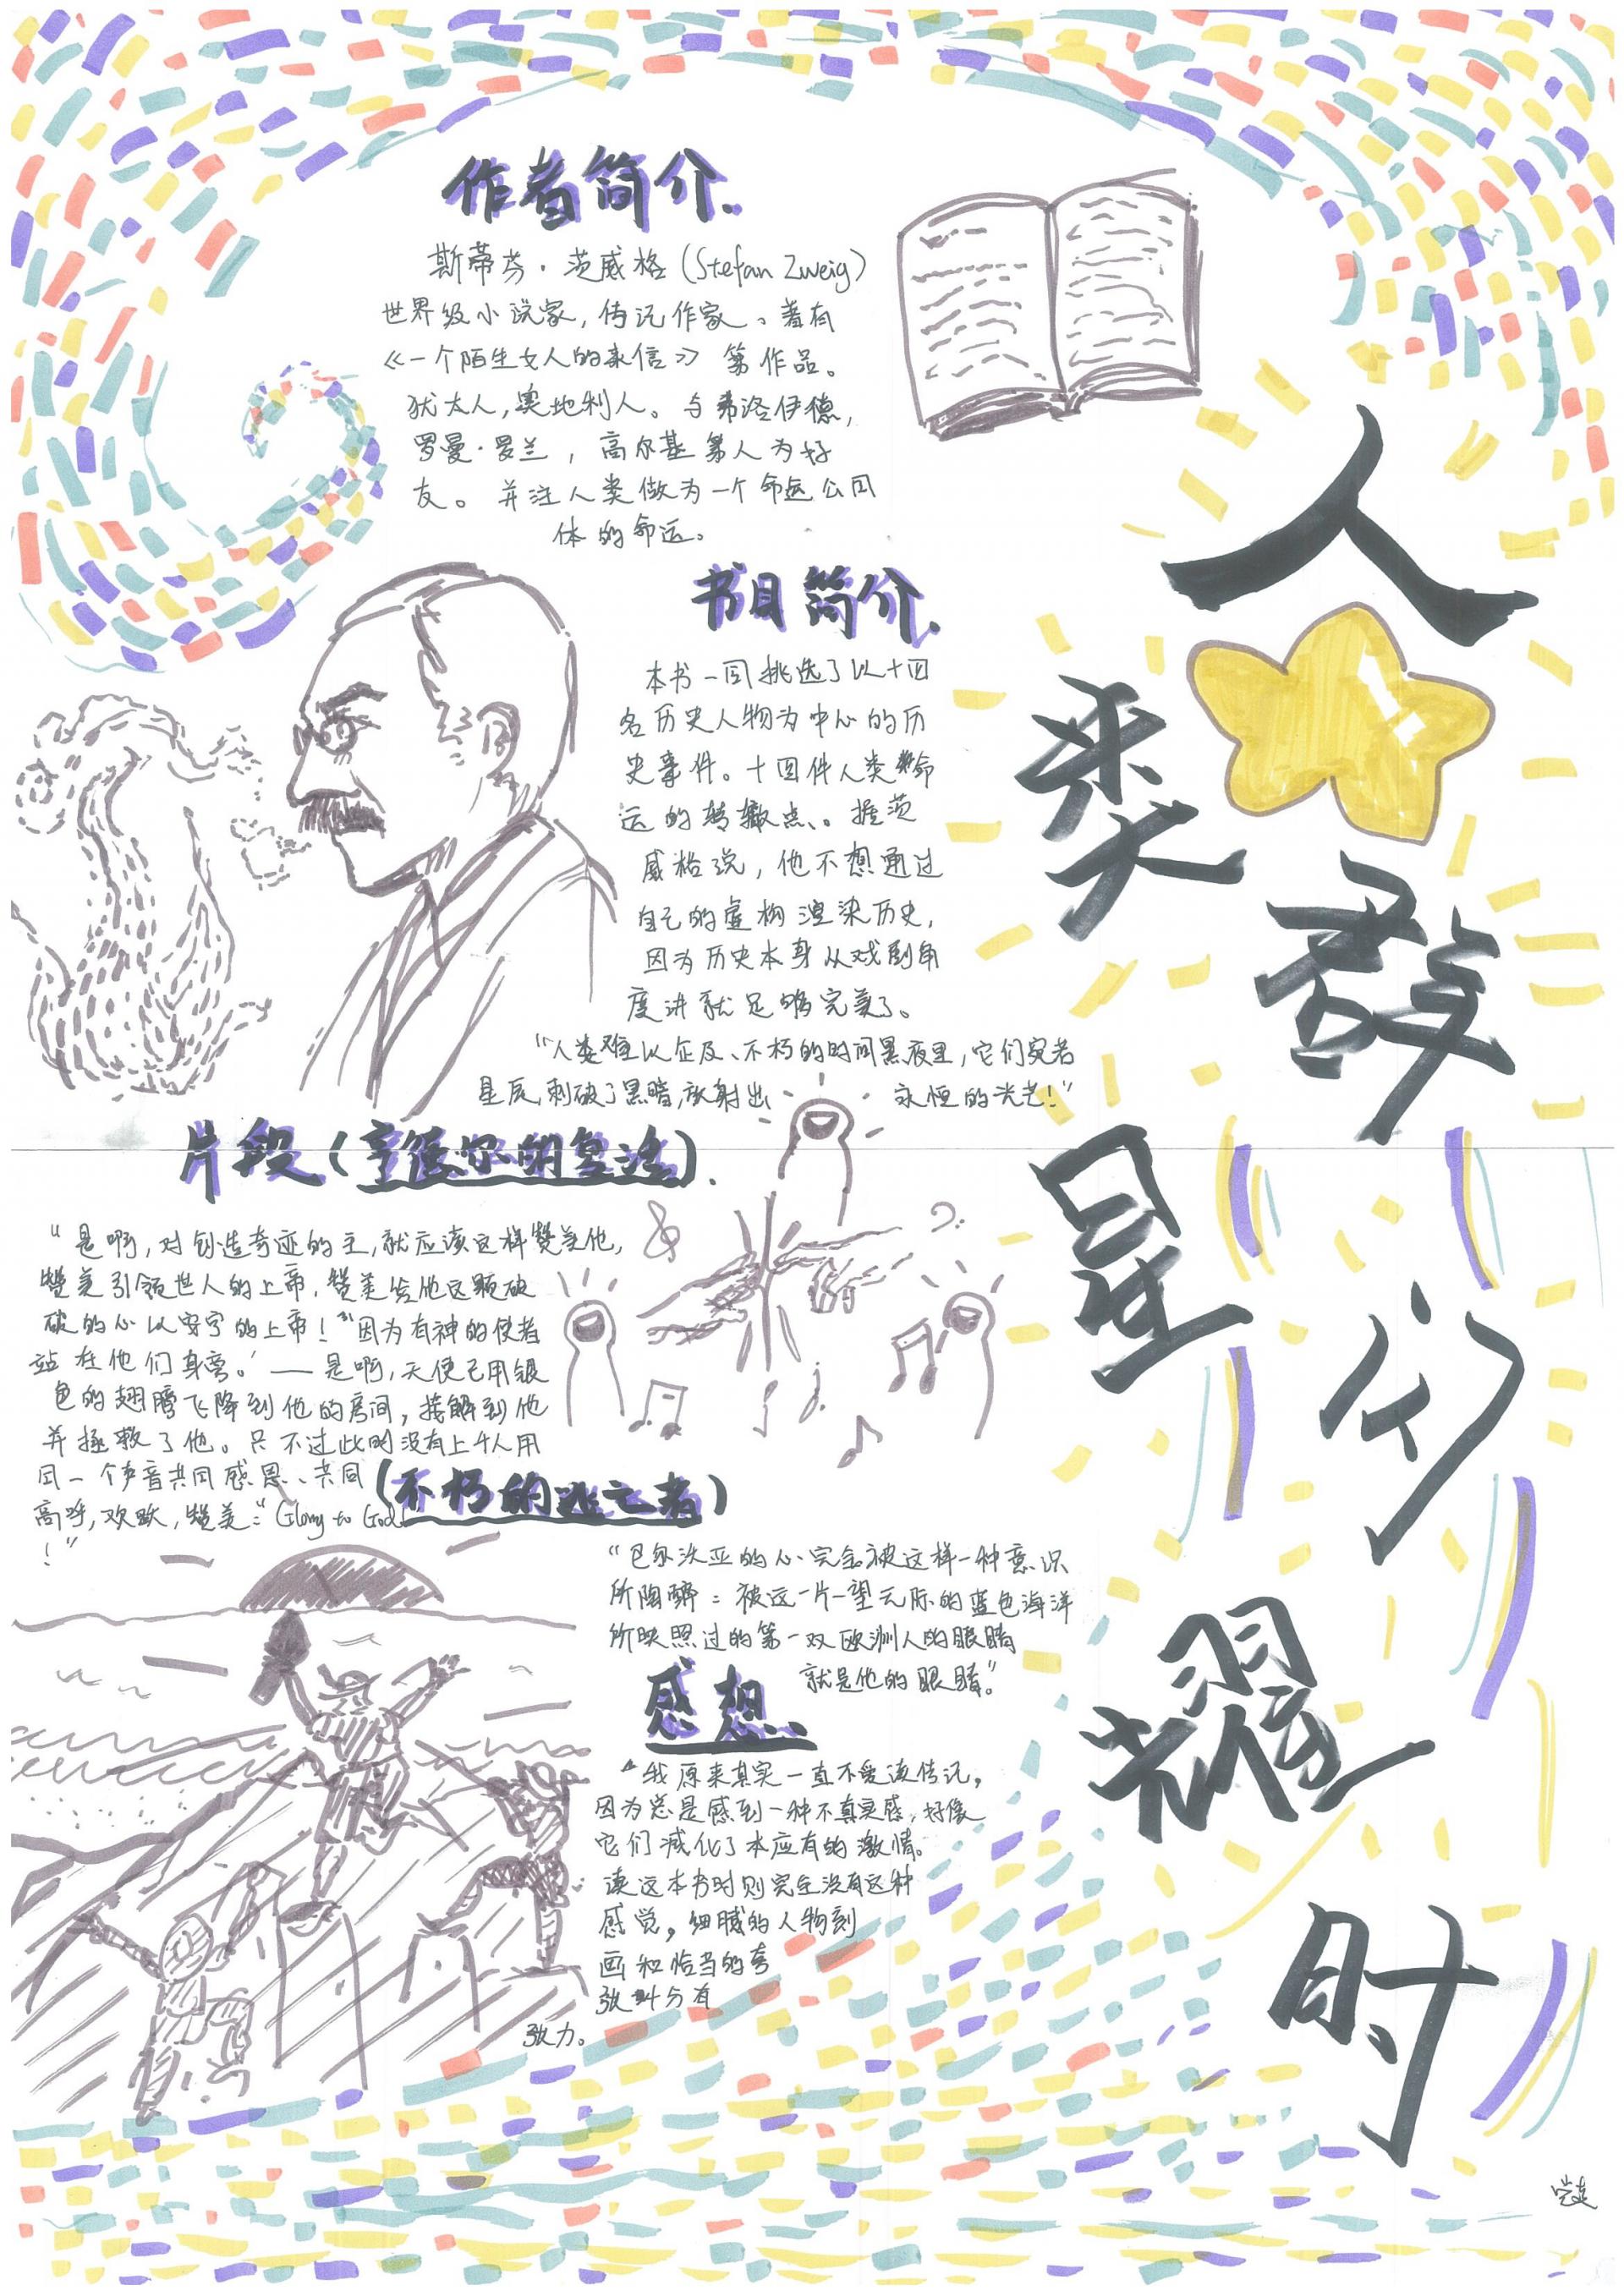 作者简介.
斯蒂芬·茨威格(Stefan Zweig)
世界级小说家,传记作家。著有
《一个陌生女人的来信》等作品。
犹太人,奥地利人。与弗洛伊德,
罗曼·罗兰,高尔基等人为好
友。并注人类做为一个命运公同
体的命运。
书目简介.
本书一同挑选了以十四
名历史人物为中心的历
史事件。十四件人类命
运的转撤点、。据茨
威格说,他不想通过
自己的虚构渲染历史,
因为历史本身从戏剧角
度讲就足够完美了。
“人类难以企及、不朽的时间黑夜里,它们宛若
星辰,刺破了黑暗,放射出 永恒的光芒!”
片段(亨德尔的复活).
“是啊,对创造奇迹的主,就应该这样赞美他,
赞美引领世人的上帝,赞美给他这颗破
破的心以安宁的上帝!‘因为有神的使者
站在他们身旁。’——是啊,天使已用银
色的翅膀飞降到他的房间,接触到他
并拯救了他。只不过此时没有上千人用
同一个声音共同感恩、共同
高呼,欢跃,赞美:“Glory to God
!”
(不朽的逃亡者)
“巴尔沃亚的心完全被这样一种意识
所陶醉:被这一片一望无际的蓝色海洋
所映照过的第一双欧洲人的眼睛
就是他的眼睛。”
感想.
“我原来其实一直不爱读传记,
因为总是感到一种不真实感,好像
它们减化了本应有的激情。
读这本书时则完全没有这种
感觉。细腻的人物刻
画和恰当的夸
张十分有
张力。
人
类
群
星
闪
耀
时